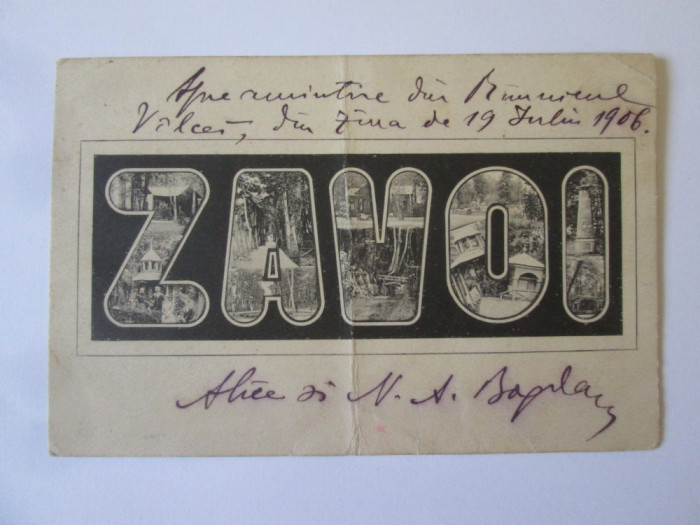 Spre amintire din Rîmnicul
Vîlcei, din ziua de 19 Iuliu 1906.
ZAVOI
Alice și N. A. Bogdan